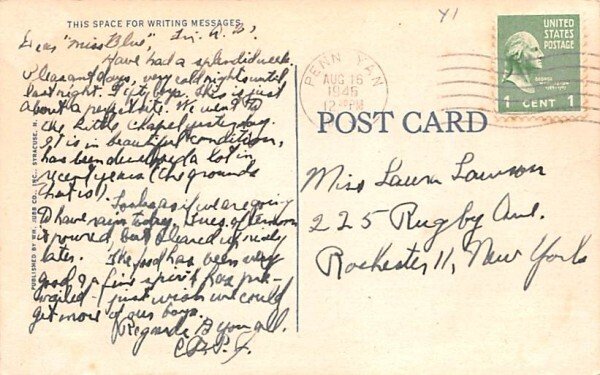 THIS SPACE FOR WRITING MESSAGES
Y1
Dear "Miss Blue",
Have had a splendid week.
Pleasant days, very cold nights until
last night. Fifty boys. This is just
about a perfect site. We went to
the Little Chapel yesterday.
It is in beautiful condition,
has been developed a lot in
recent years (the grounds
that is).
Looks as if we are going
to have rain today. Tues. afternoon
it poured, but cleared up nicely
later. The food has been very
good & a fine spirit has pre-
vailed - just wish we could
get more of our boys.
Regards to you all.
PUBLISHED BY WM. JUBB CO., INC., SYRACUSE, N.
PENN YAN
AUG 16
1946
12 PM
UNITED
STATES
POSTAGE
GEORGE
WASHINGTON
1 CENT 1
POST CARD
Miss Laura Lawson
225 Rugby Ave.
Rochester 11, New York